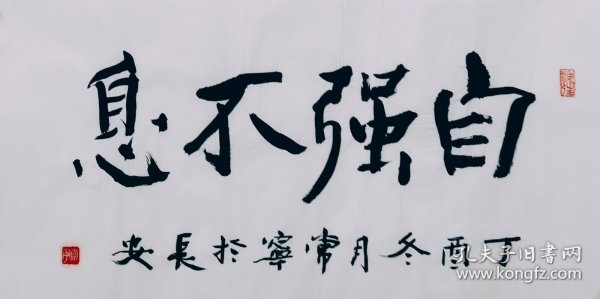 自强不息
丁酉冬月常寧於長安
孔夫子旧书网
www.kongfz.com